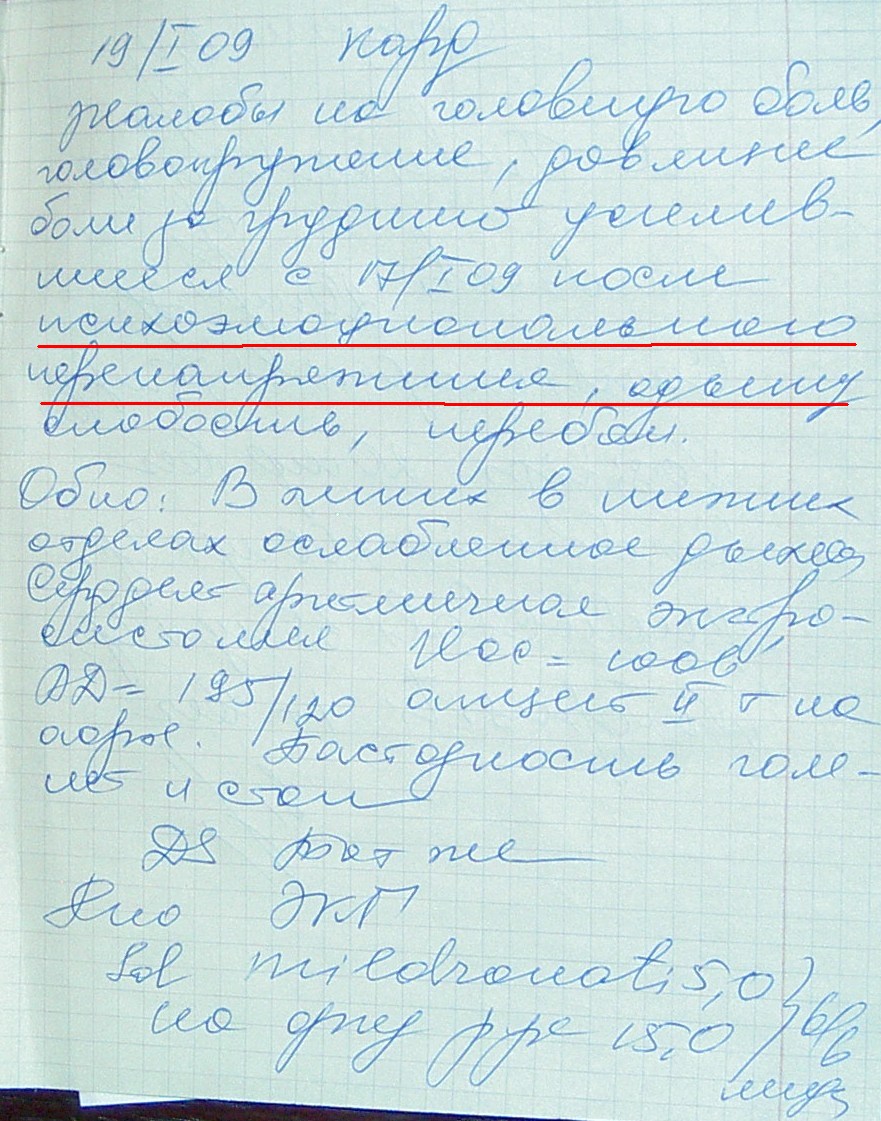 19/I 09 кард
Жалобы на головную боль,
головокружение, давящие
боли за грудиной усилив-
шиеся с 17/I 09 после
психоэмоционального
перенапряжения, одышку
слабость, перебои.
Об-но: В легких в нижних
отделах ослабленное дыхан
Сердцеб аритмичное экстра-
систолия ЧСС = 100 в
АД = 195/120 акцент II т на
аорте. Пастозность голе-
ней и стоп
DS Тот же
ЭКГ
Sol mildronati 5,0
на физ р-ре 15,0 } в/в